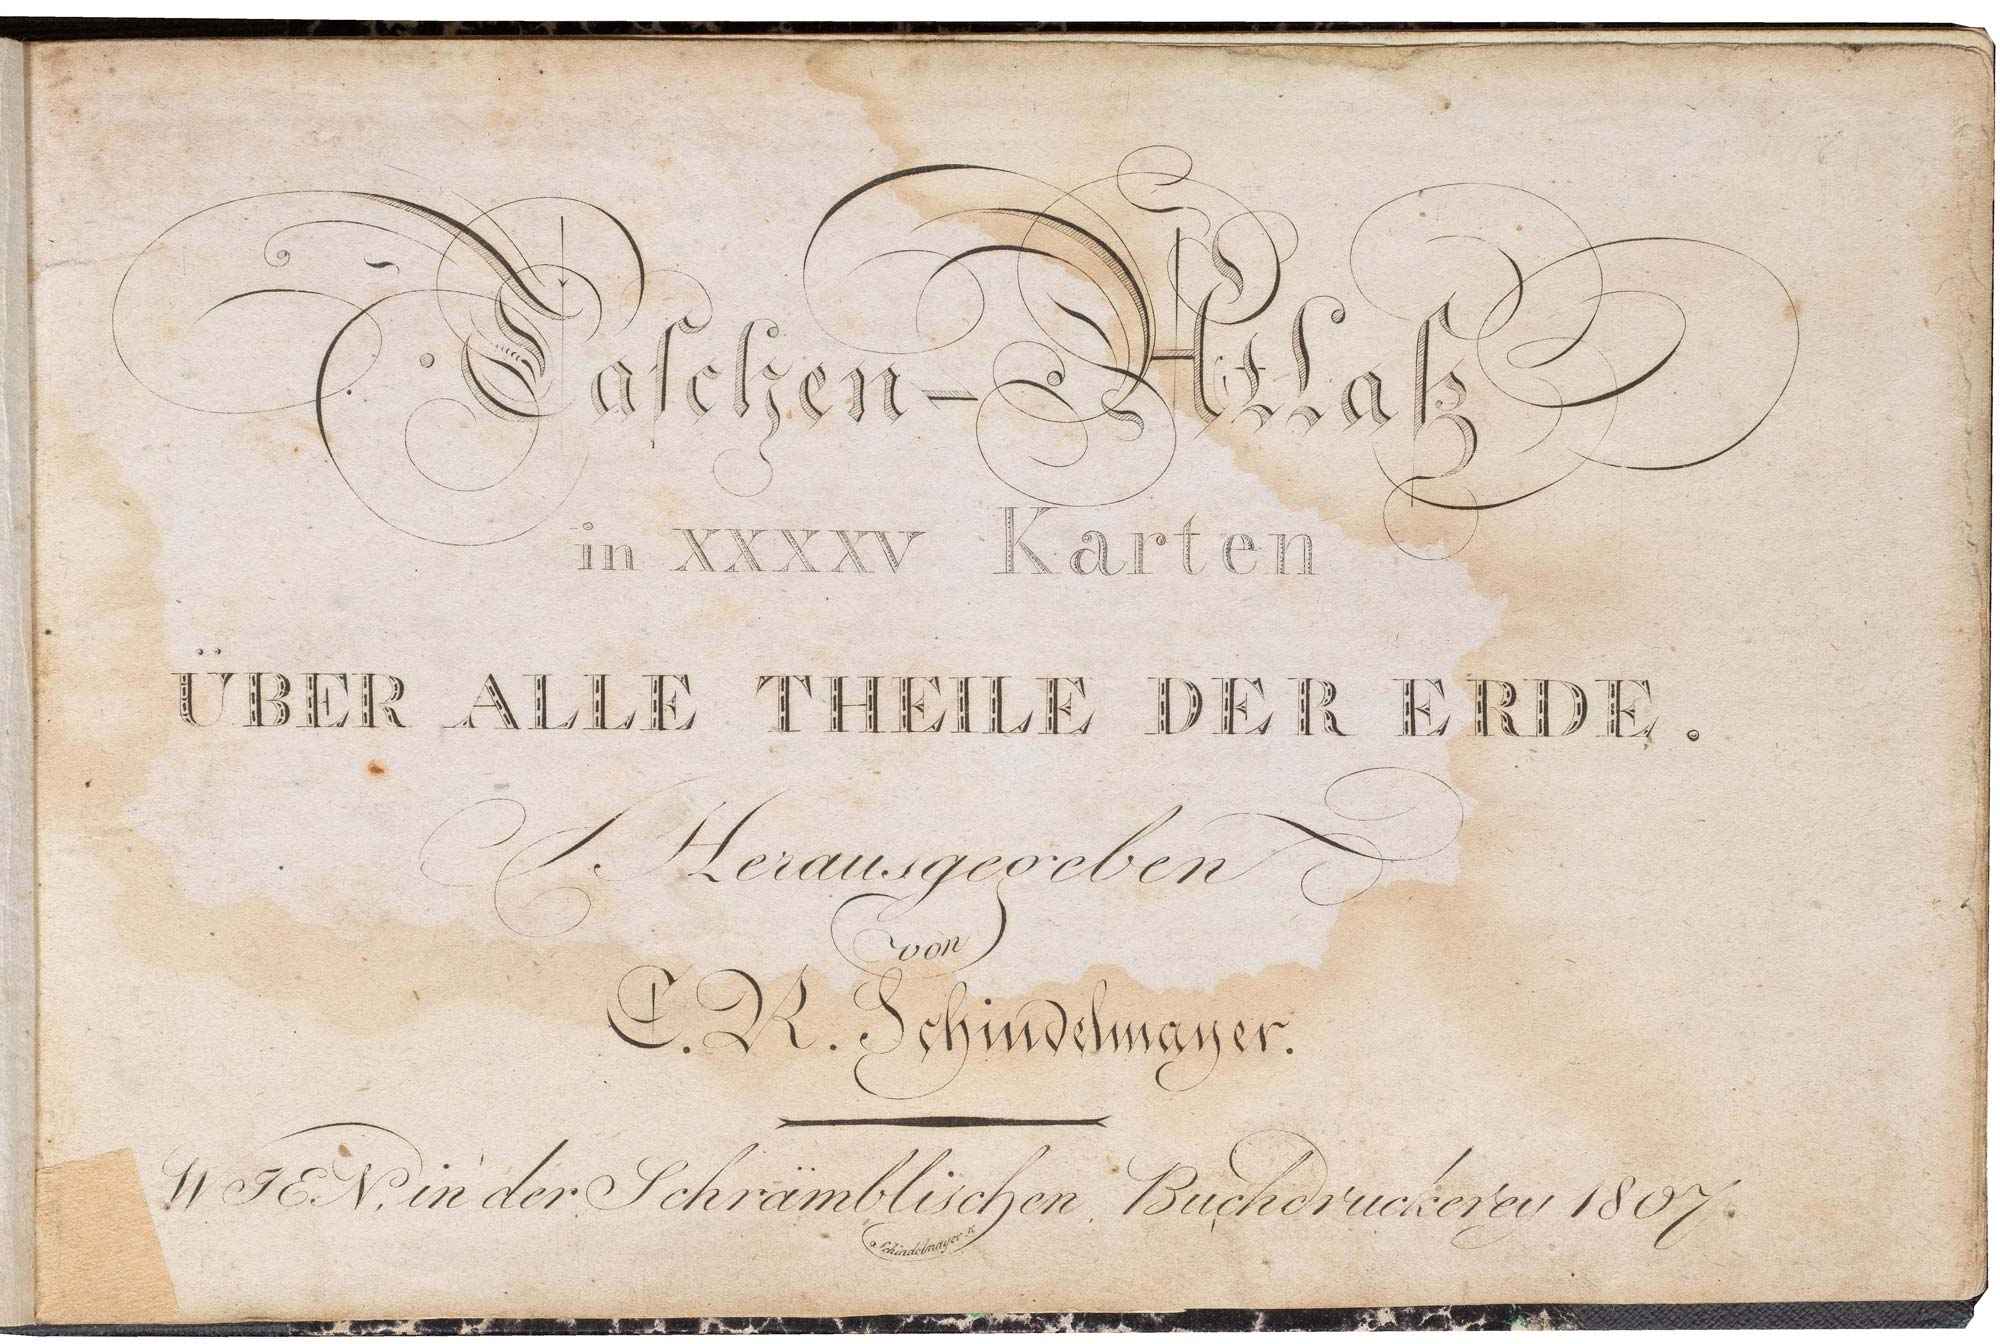 Taschen-Atlaß
in XXXXV Karten
ÜBER ALLE THEILE DER ERDE.
Herausgegeben
von
C. R. Schindelmayer.
WIEN, in der Schrämblischen Buchdruckerey 1807.
Schindelmayer